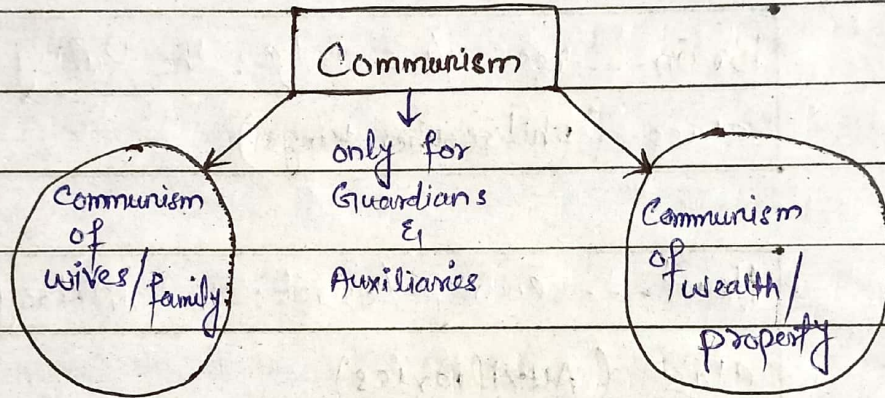 Communism
only for
Guardians
&
Auxiliaries
Communism
of
wives/family
Communism
of
wealth/
property